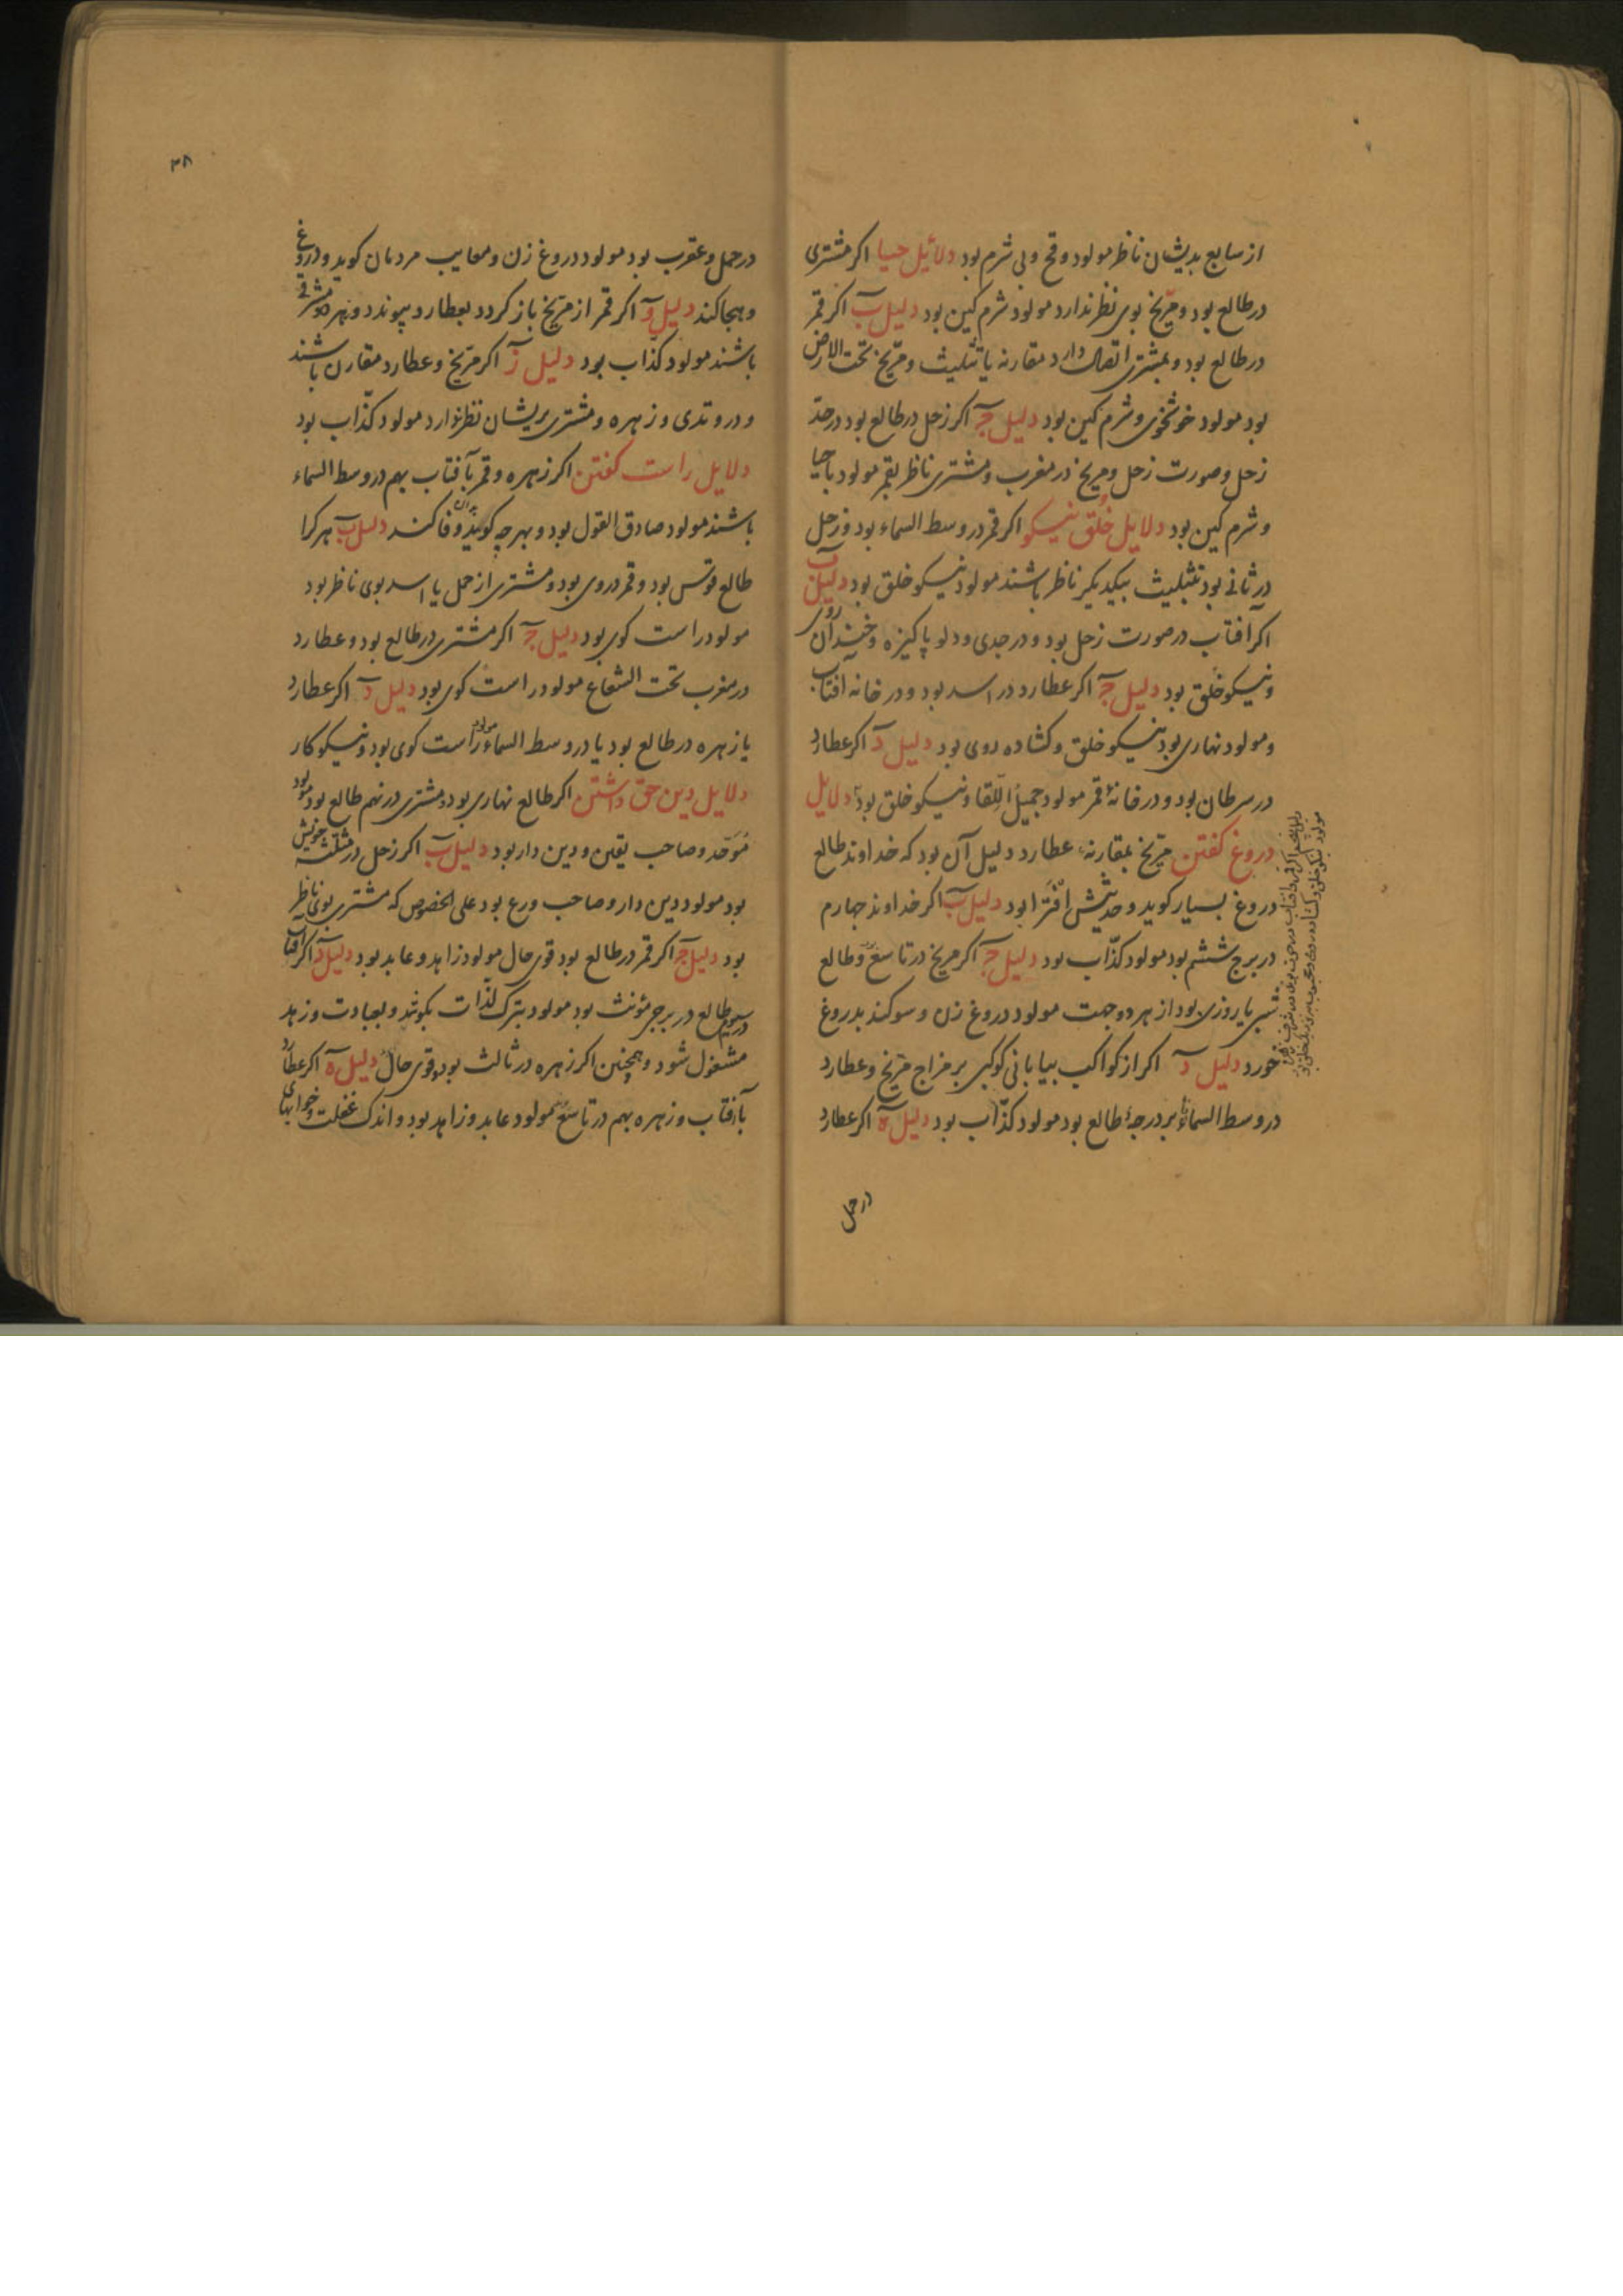 از سابع بدیشان ناظر مولود وقح و بی شرم بود دلائیل حیا اکر مشتری
در طالع بود و مرّیخ بوی نظر ندارد مولود شرم کین بود دلیل ب اکر قمر
در طالع بود و بمشتری اتصال دارد مقارنه یا تثلیث و مرّیخ تحت الارض
بود مولود خوشخوی و شرم کین بود دلیل ج اکر زحل در طالع بود در حدّ
زحل و صورت زحل و مریخ در مغرب و مشتری ناظر بقمر مولود باحیا
و شرم کین بود دلایل خُلق نیسکو اکر قمر در وسط السماء بود و زحل
در ثانی بود تثبلیث بیکدیکر ناظر باشند مولود نیسکو خلق بود دلیل ب
اکر آفتاب در صورت زحل بود و در جدی و دلو پاکیزه و خندان روی
و نیسکو خلق بود دلیل ج اکر عطارد در اسد بود و در خانه آفتاب
و مولود نهاری بود نیسکو خلق و کشاده روی بود دلیل د اکر عطارد
در سرطان بود و در خانهٔ قمر مولود جمیل اللّقا و نیسکو خلق بود دلایل
دروغ کفتن مرّیخ بمقارنهٔ عطارد دلیل آن بود که خداوند طالع
دروغ بسیار کوید و حدیثش افترا بود دلیل ب اکر خداوند چهارم
در برج ششم بود مولود کذّاب بود دلیل ج اکر مریخ در تاسع بود و طالع
شبی یا روزی بود از هر دو جهت مولود دروغ زن و سوکند بدروغ
خورد دلیل د اکر از کواکب بیابانی کوکبی بر مزاج مرّیخ و عطارد
در وسط السماء یا بر درجهٔ طالع بود مولود کذّاب بود دلیل ه اکر عطارد
در حمل
۳۸
در حمل و عقرب بود مولود دروغ زن و معایب مردمان کوید و دروغ
و هجا کند دلیل و اکر قمر از مرّیخ باز کردد و بعطارد پیوندد و هر دو مشرقی
باشند مولود کذّاب بود دلیل ز اکر مرّیخ و عطارد مقارن باشند
و در وتدی و زهره و مشتری بریشان نظر ندارد مولود کذّاب بود
دلایل راست کفتن اکر زهره و قمر بآفتاب بهم در وسط السماء
باشند مولود صادق القول بود و بهرچه کوید بدان وفا کند دلیل ب هر کرا
طالع قوس بود و قمر در وی بود و مشتری از حمل یا اسد بوی ناظر بود
مولود راست کوی بود دلیل ج اکر مشتری در طالع بود و عطارد
در مغرب تحت الشعاع مولود راست کوی بود دلیل د اکر عطارد
یا زهره در طالع بود یا در وسط السماء مولود راست کوی بود و نیسکو کار
دلایل دین حق داشتن اکر طالع نهاری بود و مشتری در نهم طالع بود مولود
مُوَحّد و صاحب یقین و دین دار بود دلیل ب اکر زحل در مثلثه خویش
بود مولود دین دار و صاحب ورع بود علی الخصوص که مشتری بوی ناظر
بود دلیل ج اکر قمر در طالع بود قوی حال مولود زاهد و عابد بود دلیل د اکر آفتاب
در سیوم طالع در برجی مؤنث بود مولود بترک لذّات بکوشد و بعبادت و زهد
مشغول شود و همچنین اکر زهره در ثالث بود و قوی حال دلیل ه اکر عطارد
بآفتاب و زهره بهم در تاسع بود مولود عابد و زاهد بود و اندک غفلت و خوابهای